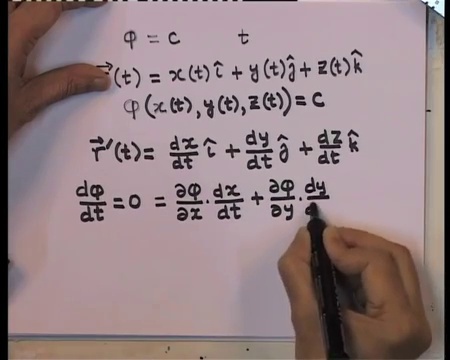 φ = c t
(t) = x(t) î + y(t) ĵ + z(t) k̂
φ(x(t), y(t), z(t)) = c
r⃗'(t) = dx/dt î + dy/dt ĵ + dz/dt k̂
dφ/dt = 0 = ∂φ/∂x · dx/dt + ∂φ/∂y · dy/